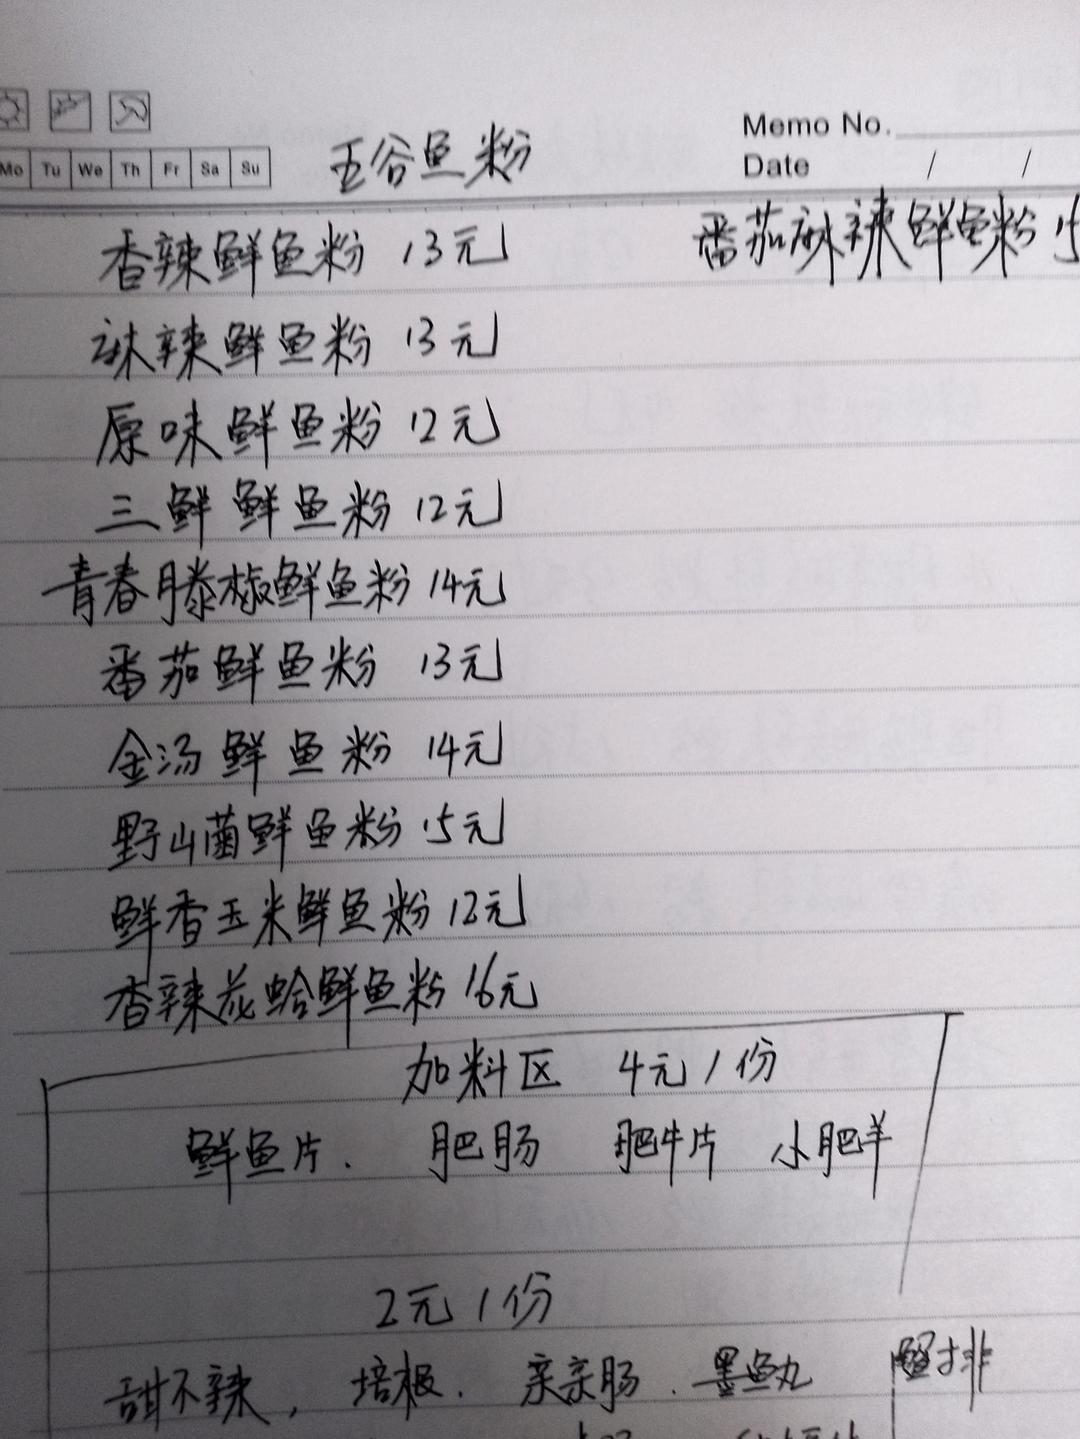 Memo No.
Mo Tu We Th Fr Sa Su
五谷鱼粉
Date / /
香辣鲜鱼粉 13元
番茄麻辣鲜鱼粉 15
麻辣鲜鱼粉 13元
原味鲜鱼粉 12元
三鲜鲜鱼粉 12元
青春滕椒鲜鱼粉 14元
番茄鲜鱼粉 13元
金汤鲜鱼粉 14元
野山菌鲜鱼粉 15元
鲜香玉米鲜鱼粉 12元
香辣花蛤鲜鱼粉 16元
加料区 4元/份
鲜鱼片. 肥肠 肥牛片 小肥羊
2元/份
甜不辣, 培根. 亲亲肠. 墨鱼丸 排